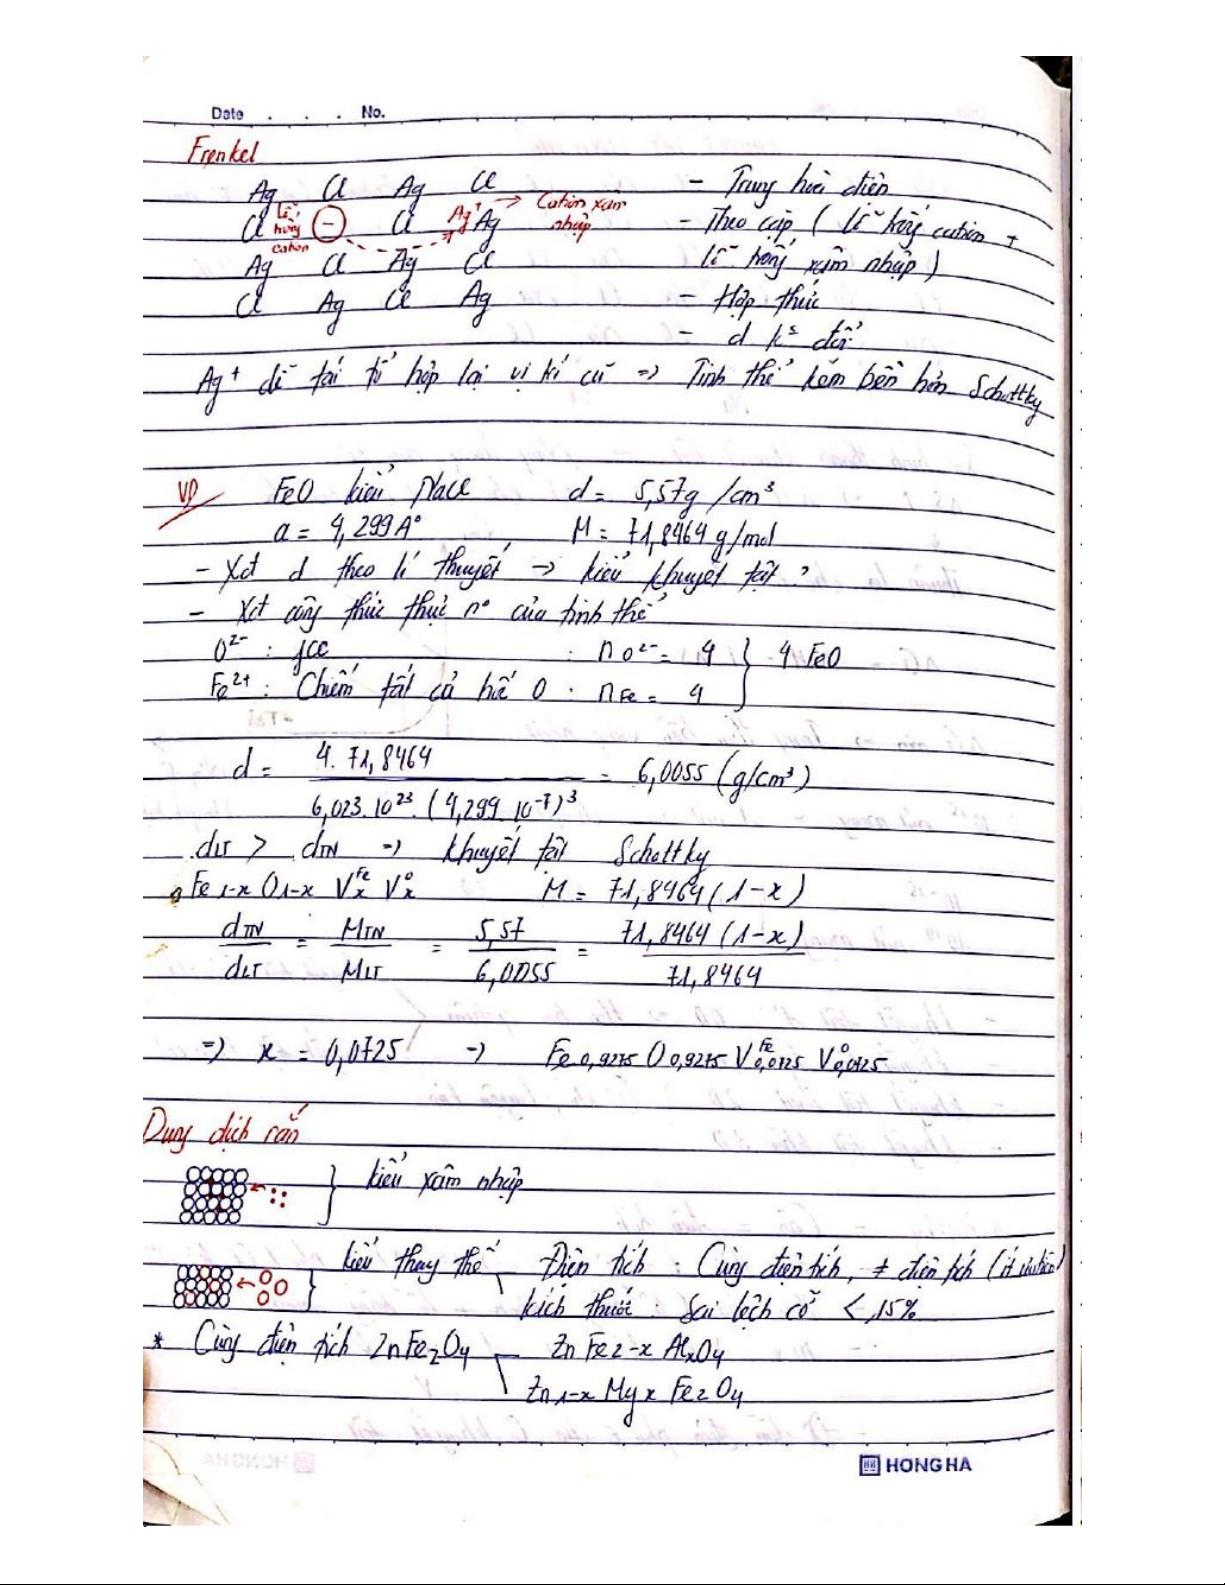 Date . . . No.
Frenkel
Ag Cl Ag Cl - Trung hoà điện
Cl lỗ hổng cation - Cl Ag+ Ag → Cation xâm nhập - Theo cặp ( lỗ hổng cation +
Ag Cl Ag Cl lỗ hổng xâm nhập )
Cl Ag Cl Ag - Hợp thức
- d ks đổi
Ag+ dễ tái tổ hợp lại vị trí cũ => Tinh thể kém bền hơn Schottky
VD FeO kiểu NaCl d = 5,57g /cm³
a = 4,299 A° M = 71,8464 g/mol
- Xđ d theo lí thuyết → kiểu khuyết tật ?
- Xđ công thức thực n° của tinh thể
O2- : fcc : n O2- = 4 } 4 FeO
Fe2+ : Chiếm tất cả hốc O : nFe = 4
d = 4. 71,8464 / 6,023.10²³. (4,299.10⁻⁷)³ = 6,0055 (g/cm³)
dLT > dTN => khuyết tật Schottky
Fe1-x O1-x VxFe VxO M = 71,8464 (1-x)
dTN / dLT = MTN / MLT = 5,57 / 6,0055 = 71,8464 (1-x) / 71,8464
=> x = 0,0725 -> Fe0,9275 O0,9275 V0,0725Fe V0,0725O
Dung dịch rắn
} kiểu xâm nhập
} kiểu thay thế Điện tích : Cùng điện tích, ≠ điện tích (ít
kích thước : Sai lệch cỡ < 15%
* Cùng điện tích ZnFe2O4 ZnFe2-x AlxO4
Zn1-x Mgx Fe2O4
HONG HA